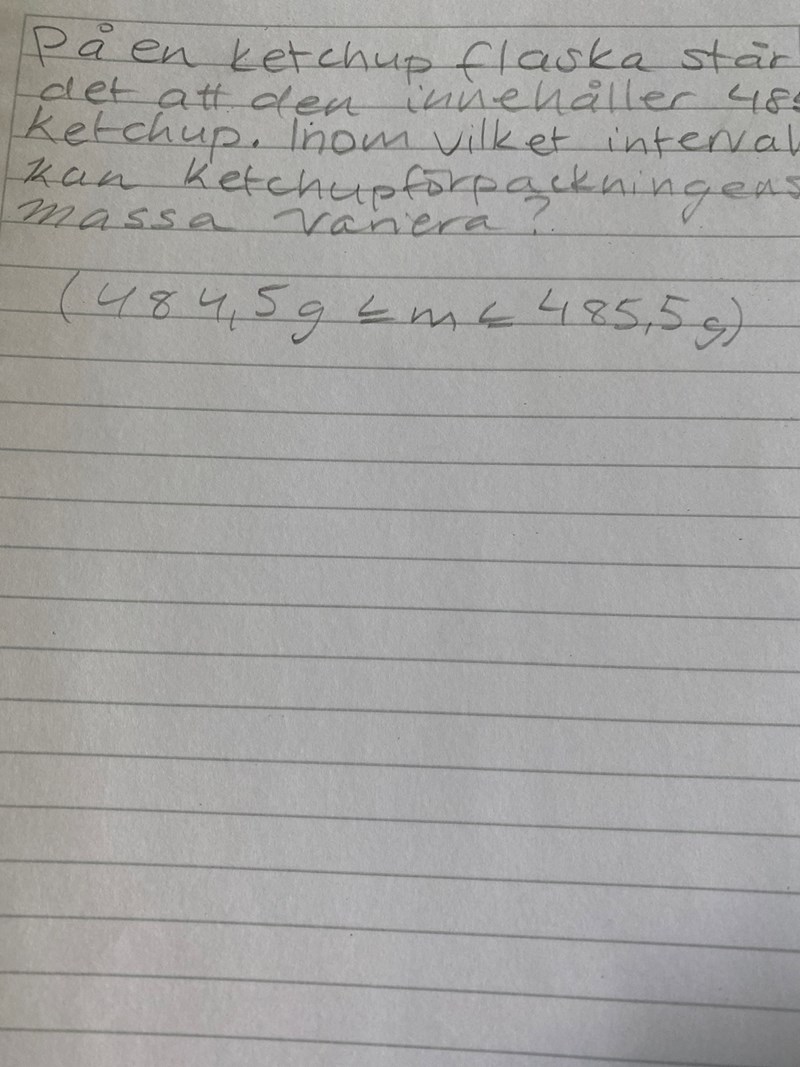 På en ketchup flaska står
det att den innehåller 485
ketchup. Inom vilket interval
kan ketchupförpackningens
massa variera?
(484,5g ≤ m ≤ 485,5g)